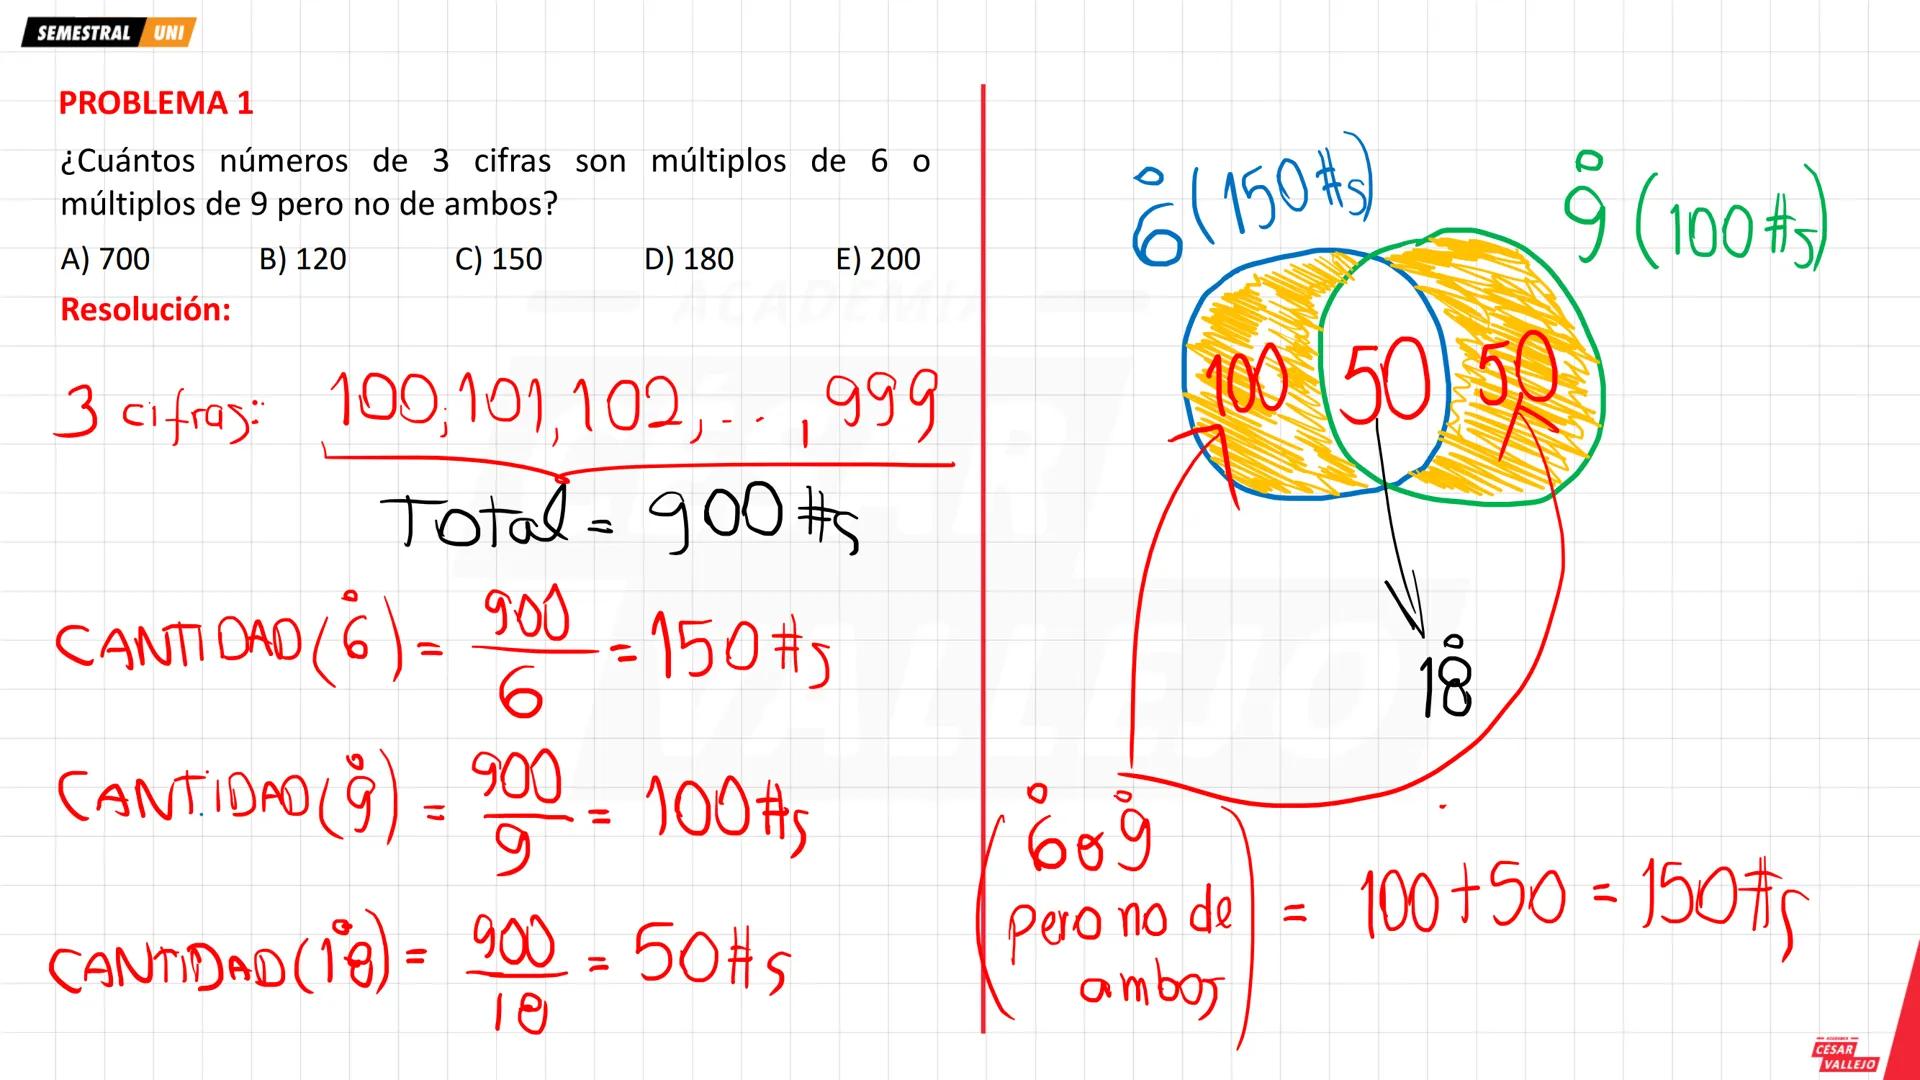 SEMESTRAL UNI
PROBLEMA 1
¿Cuántos números de 3 cifras son múltiplos de 6 o
múltiplos de 9 pero no de ambos?
A) 700 B) 120 C) 150 D) 180 E) 200
Resolución:
3 cifras: 100, 101, 102, ..., 999
Total = 900 #s
CANTIDAD (6̊) = 900/6 = 150 #s
CANTIDAD (9̊) = 900/9 = 100 #s
CANTIDAD (18̊) = 900/18 = 50 #s
6̊ (150 #s)
9̊ (100 #s)
100 50 50
18̊
(6̊ o 9̊
pero no de
ambos) = 100 + 50 = 150 #s
ACADEMIA
CÉSAR
VALLEJO
ACADEMIA
CÉSAR
VALLEJO